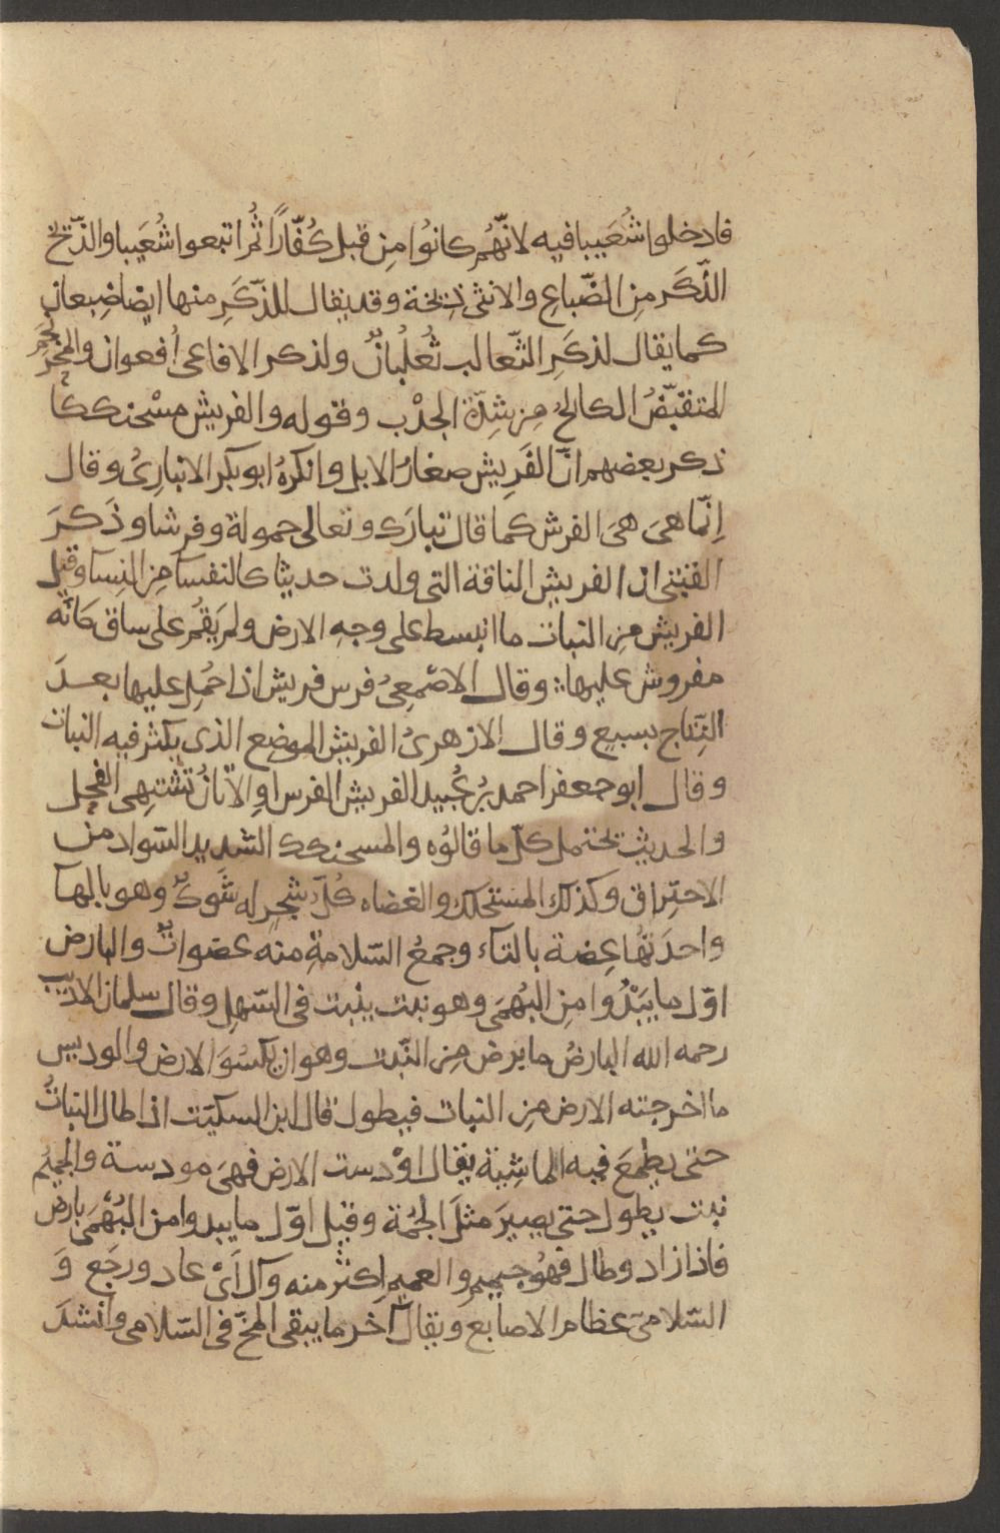 فادخلوا شُعَيبا فيه لانّهُم كانوُا مِن قبل كُفّارًا ثُم اتبعوا شُعَيبا والذّيخ
الذّكَر مِن الضّباعِ والانثى ذيخة وقد يقال للذّكَرِ منها ايضا ضِبعان
كما يقال لذكَرِ الثّعالب ثُعلُبانٌ ولذكر الافاعى اُفعوان والمجرَنجم
المتقبّضُ الكالحُ مِن شِدّة الجدْب وقوله والفريش مسْحنككا
ذكر بعضهم انّ الفَرِيش صغارُ الابل وانكرهُ ابو بكر الانبارِىُ وقال
اِنّما هىَ هىَ الفرش كما قال تبارَك وتعالى حمولة وفرشا وذَكَرَ
القتبَى ان الفريش الناقة التى ولدت حديثا كالنفسآ مِن النِسآ وقيل
الفريش مِن النبات ما انبسط على وجهِ الارض ولم يَقُم على ساق كَانّه
مفروش عليها وقال الاصْمعِىُ فرس فريش اذا حُمِل عليها بعدَ
النِتاج بسبع وقال الازهرىُ الفريش الموضع الذى يكثر فيه النبات
وقال ابو جعفر احمد بنُ عُبيد الفريش الفرس اوِ الاَتانُ تشتهى الفحل
والحديث يحتمل كلّ ما قالوُه والمسحنكك الشديد السّواد من
الاحتِراق وكذلك المستحلك والعضاه كُلّ شجرٍ له شَوكٌ وهو بالهآ
واحدَتهُا عِضة بالتآء وجمعُ السّلامةِ منه عضواتٌ والبارض
اوّل ما يَبْدُوا مِن البُهمَى وهو نبت ينبت فى السّهلِ وقال سلمان الاديب
رحمه الله البارضُ ما برض مِن النّبت وهو ان يكسُوَ الارض والوديس
ما اخرجته الارض مِن النبات فيطول قال ابن السكيت اذا طال النباتُ
حتى يطمعَ فيه الماشِية يقال اوْدست الارض فهىَ مودسة والجميُم
نبت يطول حتى يصيرَ مثلَ الجُمّة وقيل اوّل ما يبدوا من البُهْمَى بارض
فاذا زاد وطال فهُو جميم والعميم اكثرُ منه وآل اَىْ عاد ورجَع وَ
السّلامىَ عظام الاصابع ويقال آخر ما يبقى المخّ فى السّلامى وانشدَ